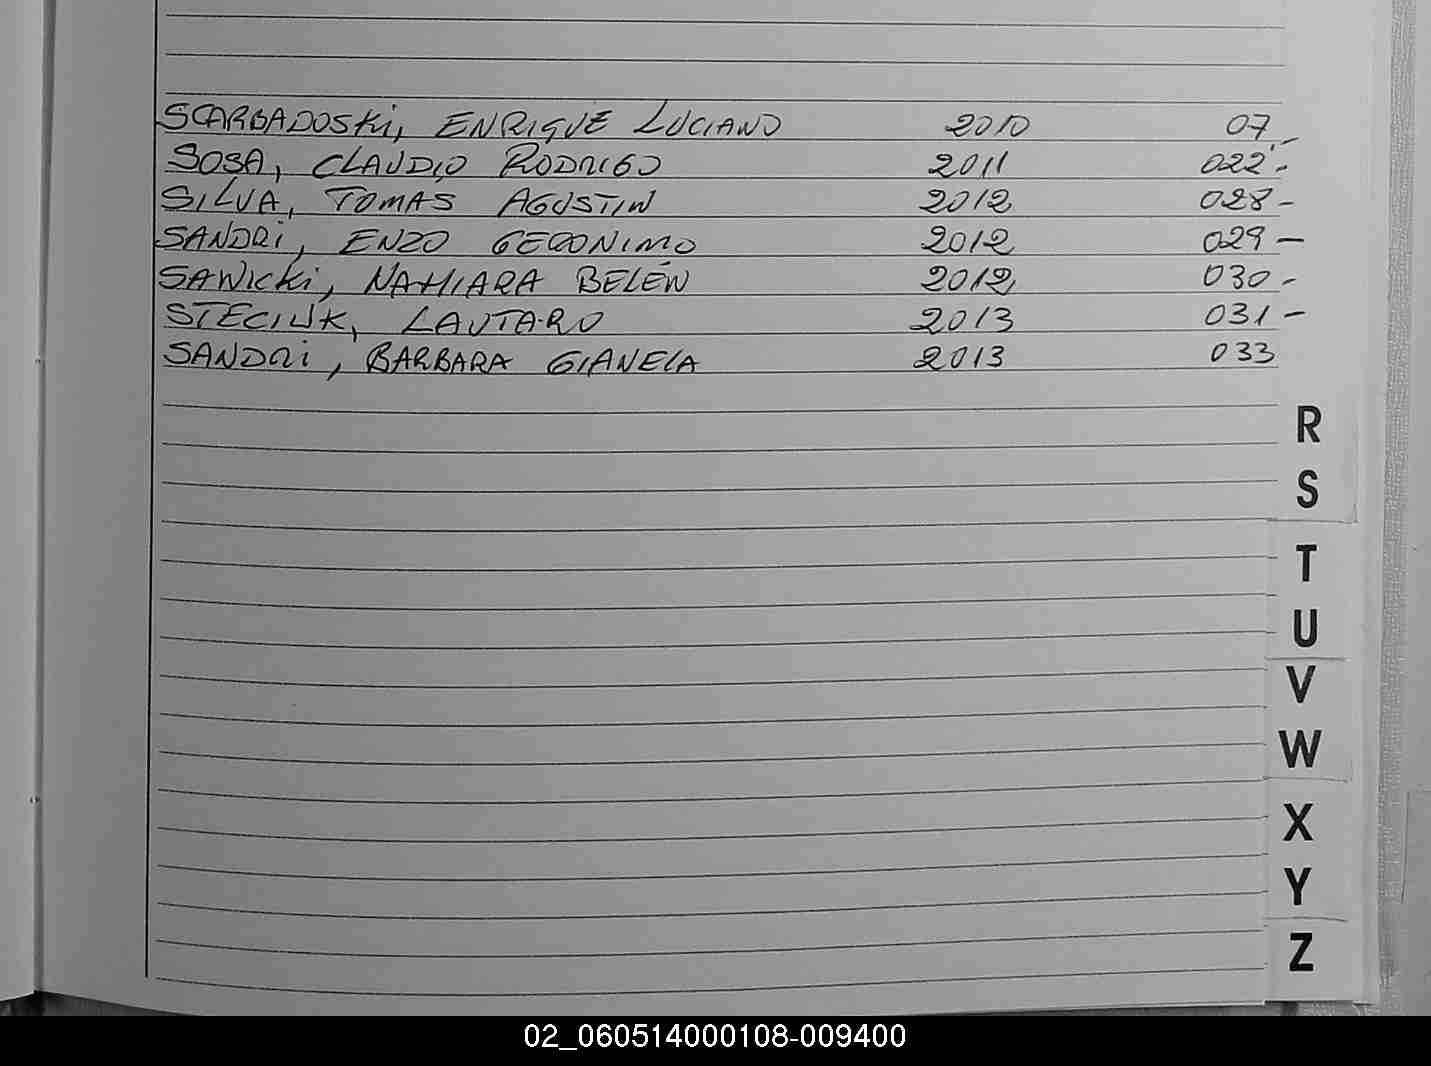 SCARBADOSKI, ENRIQUE LUCIANO 2010 07
SOSA, CLAUDIO RODRIGO 2011 022 -
SILVA, TOMAS AGUSTIN 2012 028 -
SANDRI, ENZO GERONIMO 2012 029 -
SAWICKI, NAHIARA BELÉN 2012 030 -
STECIUK, LAUTARO 2013 031 -
SANDRI, BARBARA GIANELA 2013 033
R
S
T
U
V
W
X
Y
Z
02_060514000108-009400